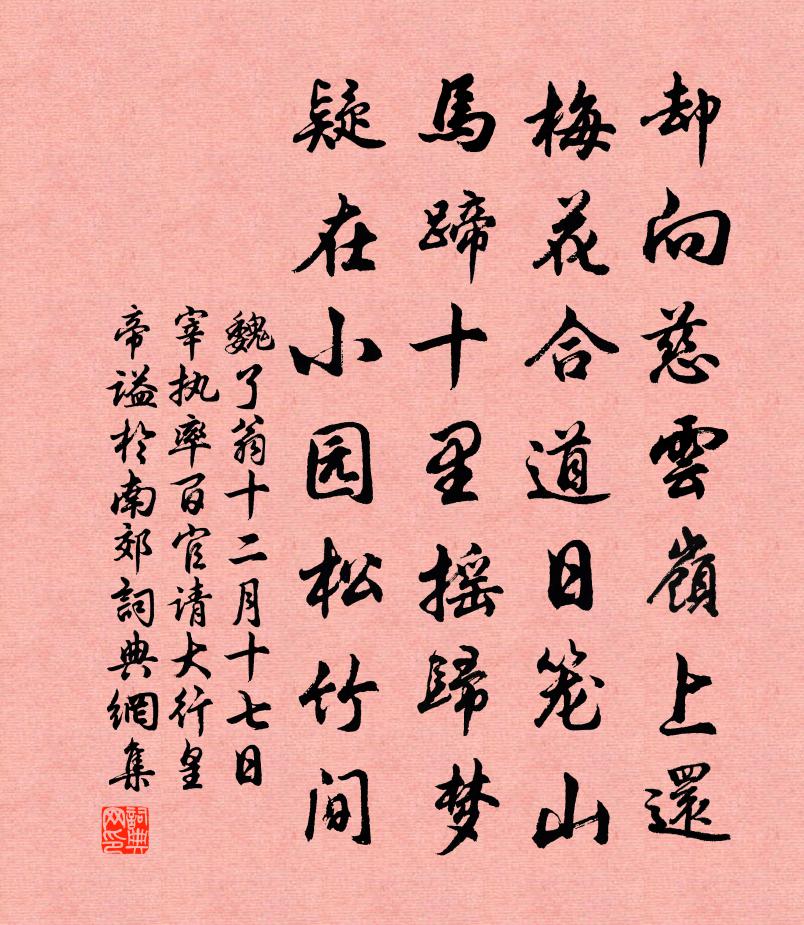 却向慈雲嶺上還
梅花合道日笼山
馬蹄十里摇歸梦
疑在小园松竹间
魏了翁十二月十七日
宰执率百官请大行皇
帝谥於南郊詞典網集
詞典
网印